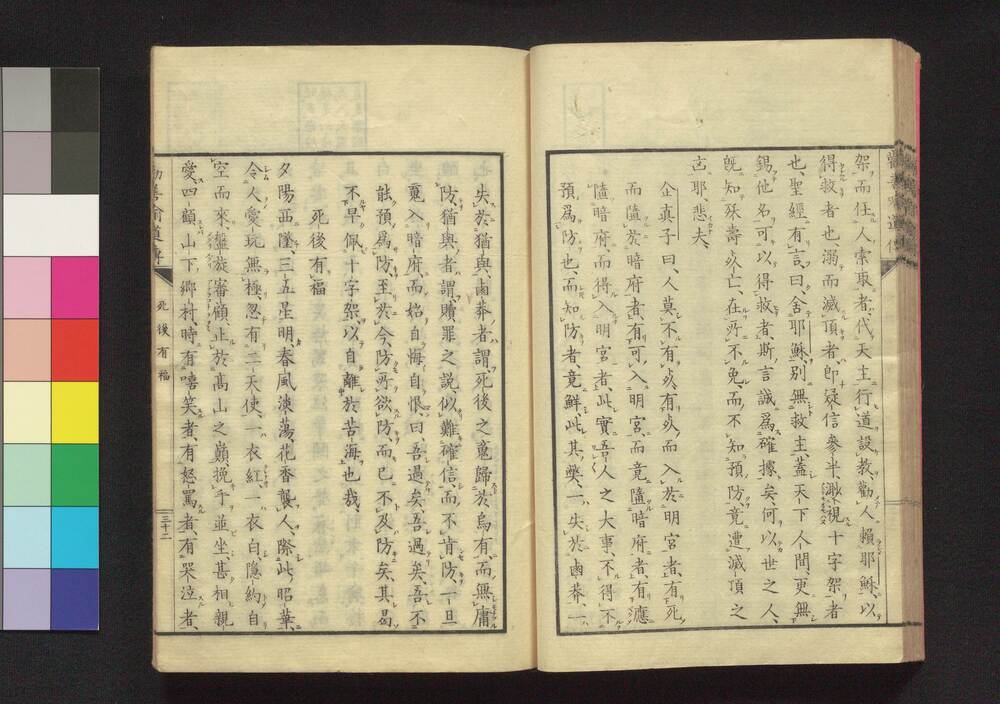 架而仕人索取者、代天主行道設教、勸人賴耶穌、以
得救者也、溺而滅頂者、卽疑信參半、渺視十字架者
也、聖經有言、曰、舍耶穌、別無救主、蓋天下人間、更無
錫他名可以得救者、斯言誠爲確據矣、何以世之人、
旣知殀壽或亡、在所不免、而不知預防、竟遭滅頂之
凶耶、悲夫、
企眞子曰、人莫不有死、有死而入於明宮者、有死
而墮於暗府者、有可入明宮、而竟墮暗府者、有應
墮暗府、而得入明宮者、此實吾人之大事、不得不
預爲防也、而知防者、竟鮮、此其獘、一失於鹵莽、一
失於猶與、鹵莽者、謂死後之䰟歸於烏有、而無庸
防、猶與者、謂贖罪之說似難確信、而不肯防、一旦
䰟入暗府、而始自悔自恨、曰、吾過矣、吾過矣、吾不
能預爲防、至於今、防所欲防、而已不及防矣、其曷
不早佩十字架以自離於苦海也哉、
死後有福
夕陽西墜、三五星明、春風淡蕩、花香襲人、際此昭華、
令人愛玩無極、忽有二天使、一衣紅、一衣白、隱約自
空而來、盤旋審顧、止於高山之巓、挽手並坐、甚相親
愛、四顧山下鄉村、時有嘻笑者、有怒罵者、有哭泣者、
勸善喩道傳
死後有福
三十二